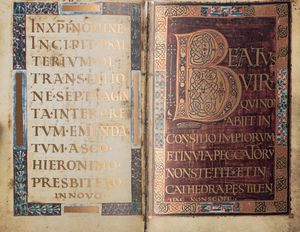 INXPINOMINE
INCIPIT PSAL
TERIUM DE
TRANSLATIO
NE SEPTUAGIN
TA INTERPRE
TUM EMENDA
TUM A SCO
HIERONIMO
PRESBITERO
IN NOVO
BEATUS
VIR
QUI NO
ABIIT IN
CONSILIO IMPIORUM
ET IN VIA PECCATORU
NON STETIT ET IN
CATHEDRA PESTILEN
TIAE NON SEDIT